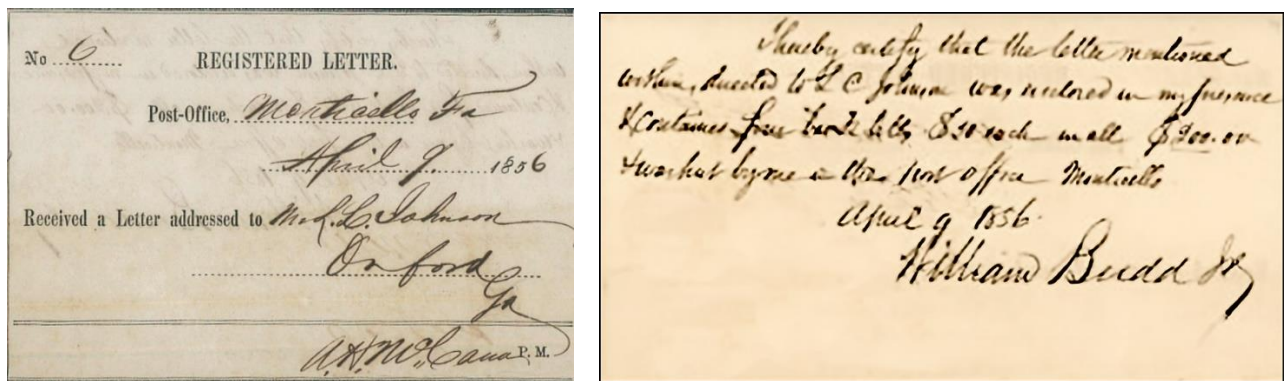 No 6
REGISTERED LETTER.
Post-Office, Monticello Fa
April 9 1856
Received a Letter addressed to Mr L. C. Johnson
Oxford
Ga
A. H. McCann P. M.
I hereby certify that the letter mentioned
within, directed to L C Johnson was in my presence
& contains four each in all $200.00
& by me in the post office Monticello
April 9 1856.
William Budd Jr